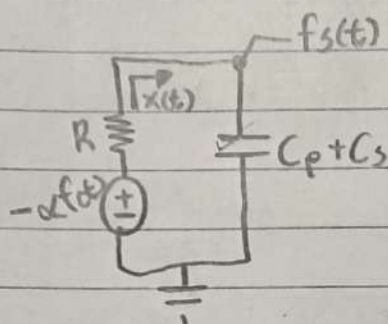 fs(t)
x(t)
R
Cp+Cs
-αf(t)
+
-